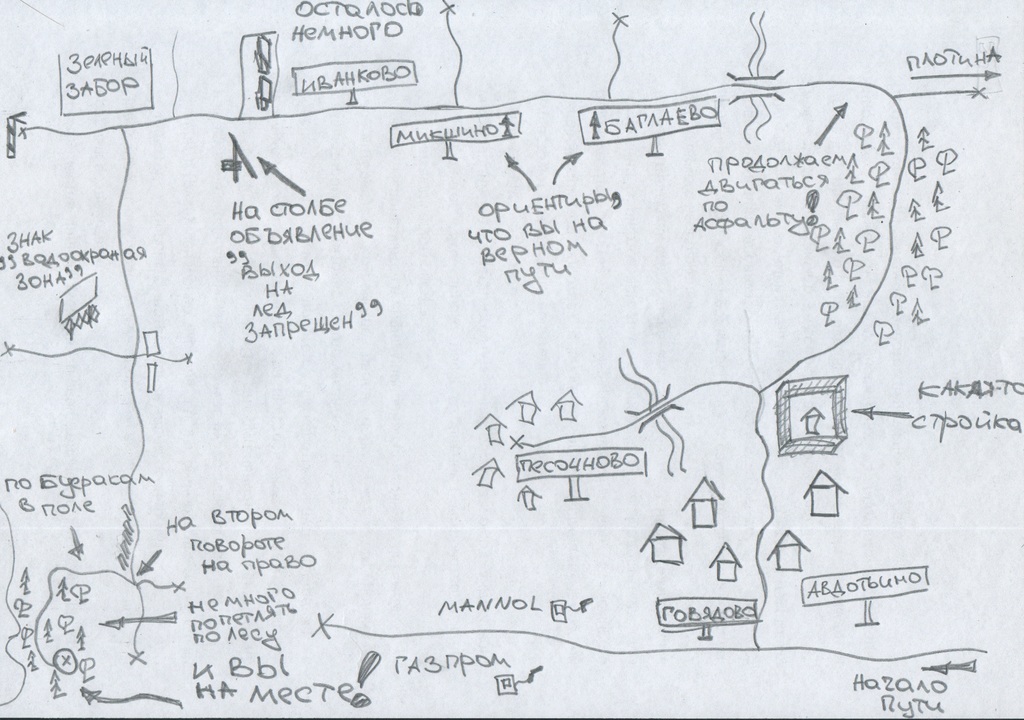 ОСТАЛОСЬ
НЕМНОГО
ЗЕЛЕНЫЙ
ЗАБОР
ИВАНКОВО
МИКШИНО
БАГЛАЕВО
ПЛОТИНА
ПРОДОЛЖАЕМ
ДВИГАТЬСЯ
ПО
АСФАЛЬТУ
ОРИЕНТИРЫ,
ЧТО ВЫ НА
ВЕРНОМ
ПУТИ
НА СТОЛБЕ
ОБЪЯВЛЕНИЕ
"ВЫХОД
НА
ЛЕД
ЗАПРЕЩЕН"
ЗНАК
"ВОДООХРАНАЯ
ЗОНА"
КАКАЯ-ТО
СТРОЙКА
ПЕСОЧНОВО
ПО БУЕРАСАМ
В ПОЛЕ
НА ВТОРОМ
ПОВОРОТЕ
НА ПРАВО
НЕМНОГО
ПОПЕТЛЯТЬ
ПО ЛЕСУ
И ВЫ
НА МЕСТЕ!
MANNOL
ГАЗПРОМ
ГОВЯДОВО
АВДОТЬИНО
НАЧАЛО
ПУТИ